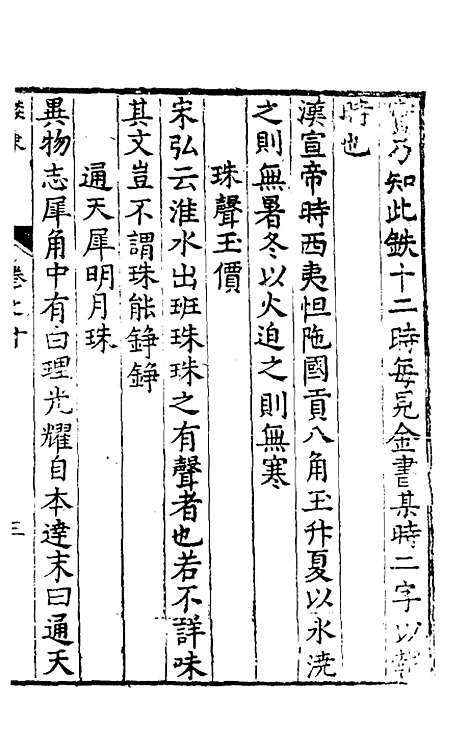 乃知此鉄十二時每見金書某時二字以報
時也
漢宣帝時西夷怛陁國貢八角玉升夏以氷澆
之則無暑冬以火迫之則無寒
珠聲玉價
宋弘云淮水出班珠珠之有聲者也若不詳味
其文豈不謂珠能錚錚
通天犀明月珠
異物志犀角中有白理光耀自本達末曰通天
卷之十
三